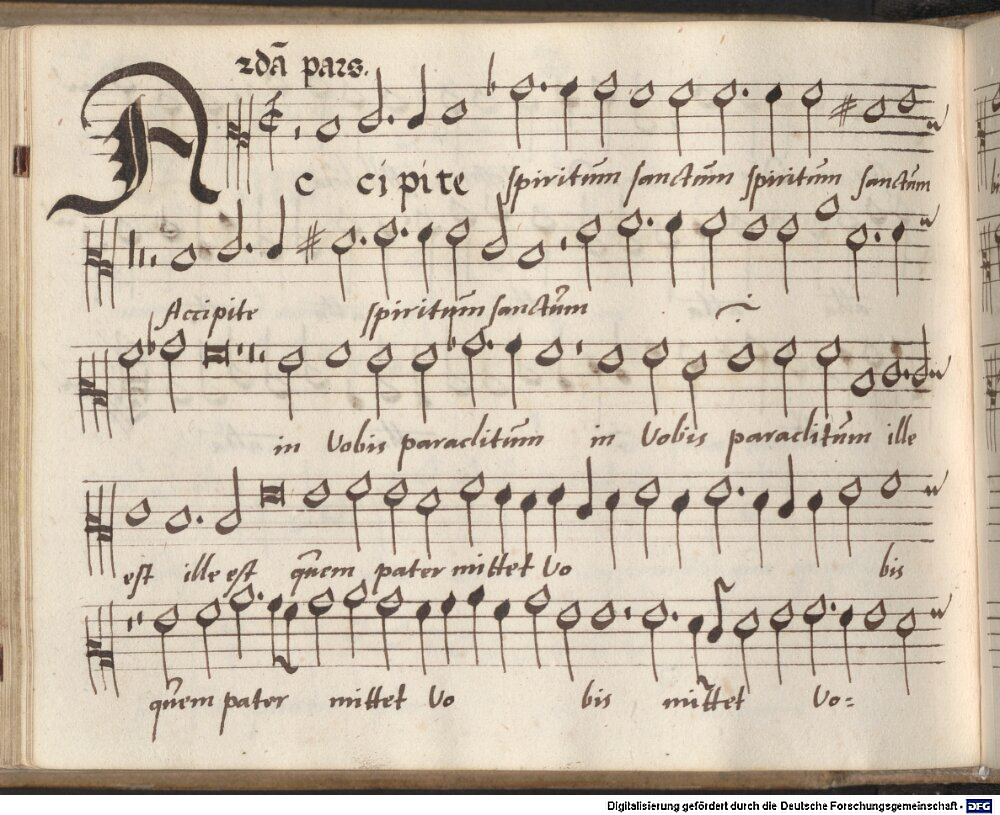 2da pars.
Accipite spiritum̄ sanctum̄ spiritum̄ sanctum̄
Accipite spiritum̄ sanctum̄ ·/·
in Vobis paraclitum̄ in Vobis paraclitum̄ ille
est ille est quem̄ pater mittet Vo bis
quem̄ pater mittet Vo bis mittet Vo=
Digitalisierung gefördert durch die Deutsche Forschungsgemeinschaft - DFG